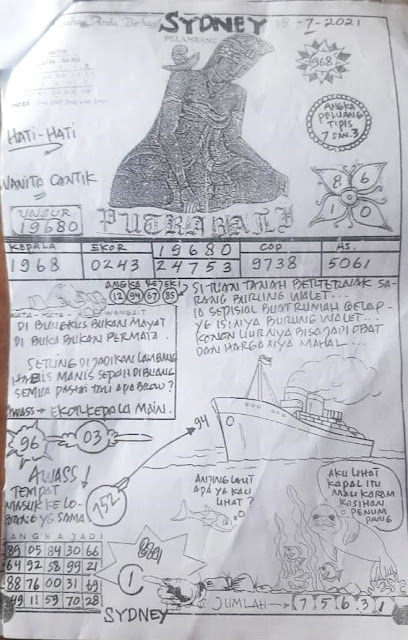 Anda Berhasil
SYDNEY
18-7-2021
PELAMBANG
968
ANGKA
PELUANG
TIPIS
7 DAN 3
HATI-HATI
WANITA CANTIK
8 6
1 0
UNSUR
19680
PUTRA BALI
KEPALA EKOR 19680 COP AS.
1968 0243 24753 9738 5061
ANGKA REJEKI
12 94 67 85
KATA-KATA WANGSIT
DI BUNGKUS BUKAN MAYAT
DI BUKA BUKAN PERMATA.
SETUNG DIJADIKAN LAMBANG
HABIS MANIS SEPAH DIBUANG
SEMUA PASTI TAU APA BEAU?
AWASS → EKOR KEPALA MAIN.
SI TUAN TANAH BERTERNAK SA-
RANG BURUNG WALET...
IA SEPISIAL BUAT RUMAH GELAP
YG ISINYA BURUNG WALET...
KONON LIURNYA BISA JADI OBAT
DAN HARGANYA MAHAL...
96
03
94
AWASS!
TEMPAT
MASUK KE LO-
BANG YG SAMA
752
ANJING LAUT
APA YG KAU
LIHAT?
AKU LIHAT
KAPAL ITU
MAU KARAM
KASIHAN
PENUM
PANG
ANGKA JADI
89 05 84 30 66
64 92 58 99 21
88 76 00 31 69
49 11 59 70 28
1
SYDNEY
JUMLAH → 7 5 6 3 1